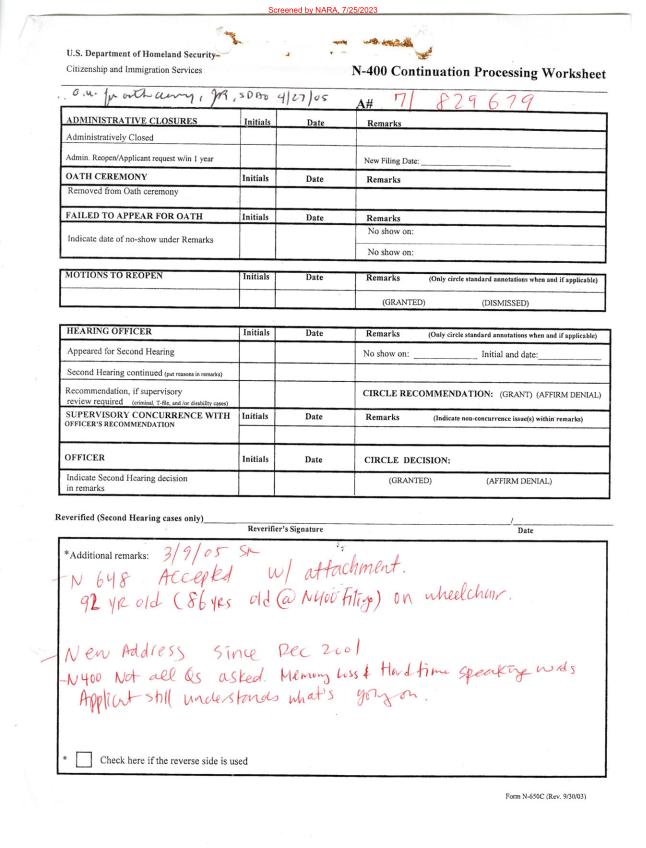 Screened by NARA, 7/25/2023
U.S. Department of Homeland Security
Citizenship and Immigration Services
N-400 Continuation Processing Worksheet
o.k. for oath cerny, JR, SDAO 4/27/05
A# 71 829679
ADMINISTRATIVE CLOSURES Initials Date Remarks
Administratively Closed
Admin. Reopen/Applicant request w/in 1 year New Filing Date:
OATH CEREMONY Initials Date Remarks
Removed from Oath ceremony
FAILED TO APPEAR FOR OATH Initials Date Remarks
No show on:
Indicate date of no-show under Remarks
No show on:
MOTIONS TO REOPEN Initials Date Remarks (Only circle standard annotations when and if applicable)
(GRANTED) (DISMISSED)
HEARING OFFICER Initials Date Remarks (Only circle standard annotations when and if applicable)
Appeared for Second Hearing No show on: Initial and date:
Second Hearing continued (put reasons in remarks)
Recommendation, if supervisory
review required (criminal, T-file, and /or disability cases) CIRCLE RECOMMENDATION: (GRANT) (AFFIRM DENIAL)
SUPERVISORY CONCURRENCE WITH Initials Date Remarks (Indicate non-concurrence issue(s) within remarks)
OFFICER'S RECOMMENDATION
OFFICER Initials Date CIRCLE DECISION:
Indicate Second Hearing decision (GRANTED) (AFFIRM DENIAL)
in remarks
Reverified (Second Hearing cases only) /
Reverifier's Signature Date
*Additional remarks: 3/9/05
- N 648 Accepted w/ attachment.
92 yr old (86 yrs old @ N400 Filing) on wheelchair.
- New Address since Dec 2001
- N400 Not all Qs asked. Memory Loss & Hard time speaking words
Applicant still understands what's going on.
* Check here if the reverse side is used
Form N-650C (Rev. 9/30/03)